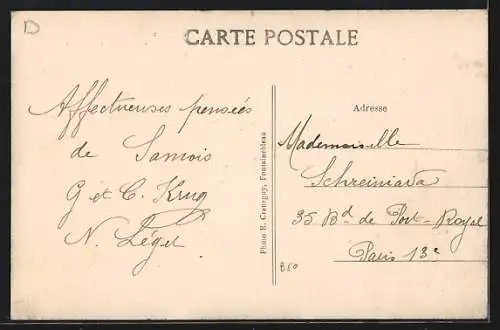 D
CARTE POSTALE
Affectueuses pensées
de Samois
G et C. Krug
N. Léget
Photo E. Crataguy, Fontainebleau
Adresse
Mademoiselle
Schreiniava
35 Bd de Port-Royal
Paris 13e